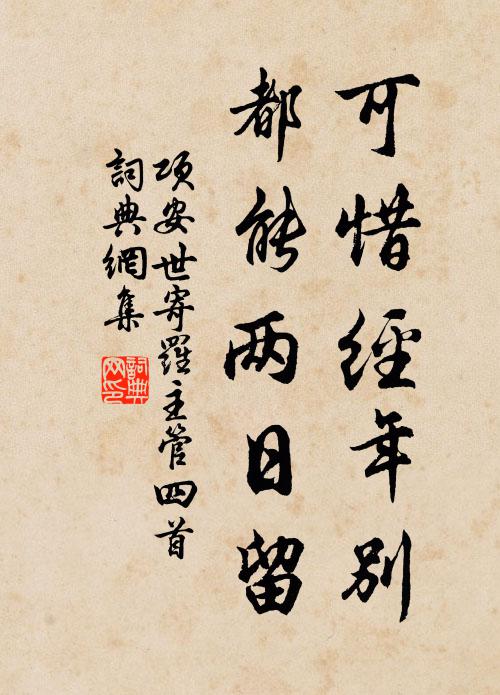 可惜經年别
都能两日留
項安世寄羅主管四首
詞典網集
詞典网印